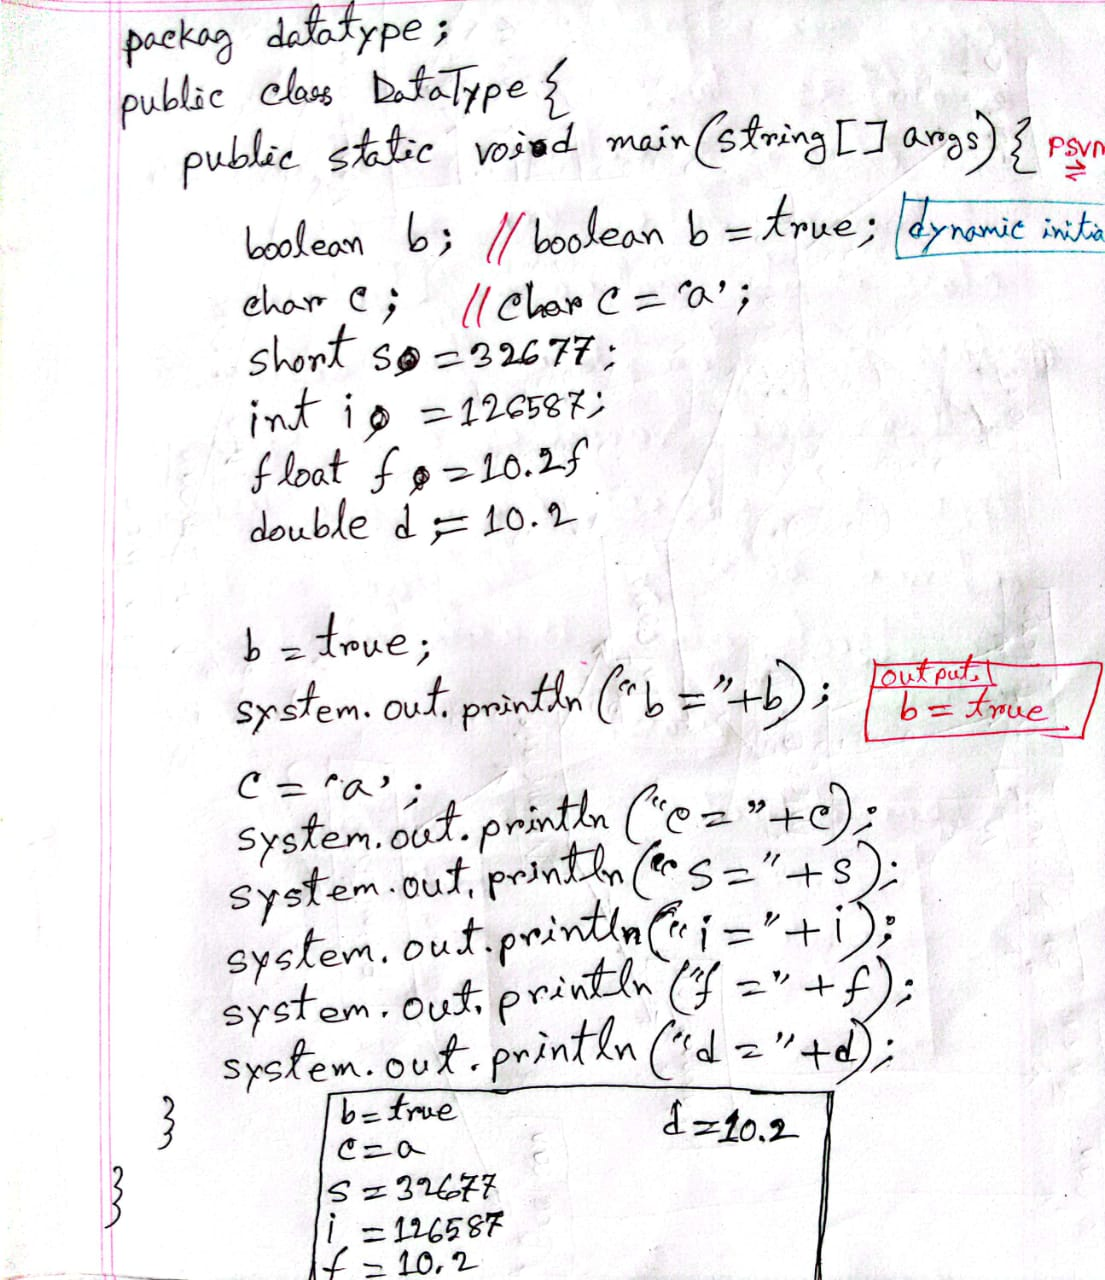 packag datatype;
public class DataType {
public static void main(string[] args) { PSVM
boolean b; // boolean b = true; dynamic initia
char c; // char c = 'a';
short s = 32677;
int i = 126587;
float f = 10.2f
double d = 10.2
b = true;
system.out.println("b ="+b); output
b = true
c = 'a';
system.out.println("c = "+c);
system.out.println("s = "+s);
system.out.println("i = "+i);
system.out.println("f = "+f);
system.out.println("d = "+d);
} b = true d = 10.2
c = a
} s = 32677
i = 126587
f = 10.2